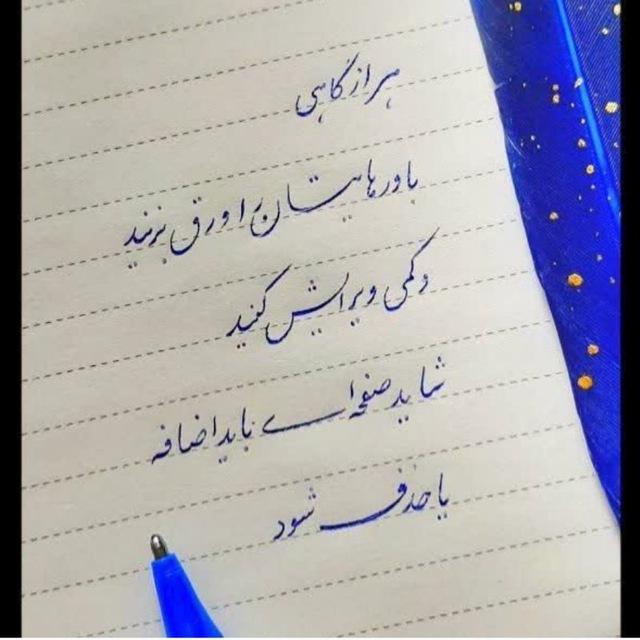 هر از گاهی
باورهایتان را ورق بزنید
و کمی ویرایش کنید
شاید صفحه ای باید اضافه
یا حذف شود